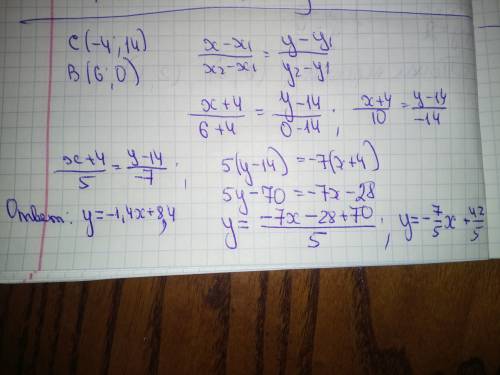 C(-4; 14)
B(6; 0)
(x-x₁)/(x₂-x₁) = (y-y₁)/(y₂-y₁)
(x+4)/(6+4) = (y-14)/(0-14); (x+4)/10 = (y-14)/-14
(x+4)/5 = (y-14)/-7; 5(y-14) = -7(x+4)
5y-70 = -7x-28
Ответ: y=-1,4x+8,4
y = (-7x-28+70)/5; y=-7/5x + 42/5